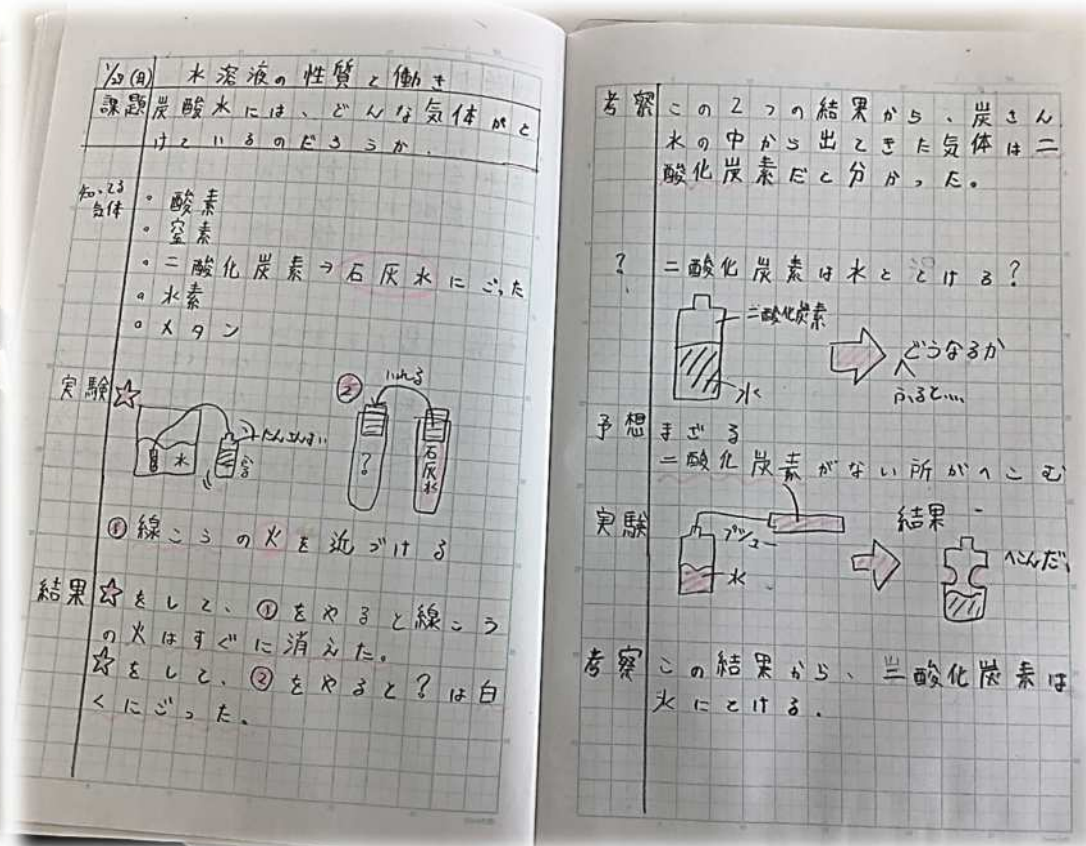 水溶液の性質と働き
課題 炭酸水には、どんな気体がと
けているのだろうか。
知ってる気体
・酸素
・窒素
・二酸化炭素→石灰水にごった
・水素
・メタン
実験 ☆
水
たんさんすい
②
いれる
?
石灰水
①線こうの火を近づける
結果 ☆をして、①をやると線こう
の火はすぐに消えた。
☆をして、②をやると?は白
くにごった。
考察 この2つの結果から、炭さん
水の中から出てきた気体は二
酸化炭素だと分かった。
? 二酸化炭素は水ととける?
二酸化炭素
水
どうなるか
ふると…
予想 まざる
二酸化炭素がない所がへこむ
実験
プシュー
水
結果
へこんだ
考察 この結果から、二酸化炭素は
水にとける。